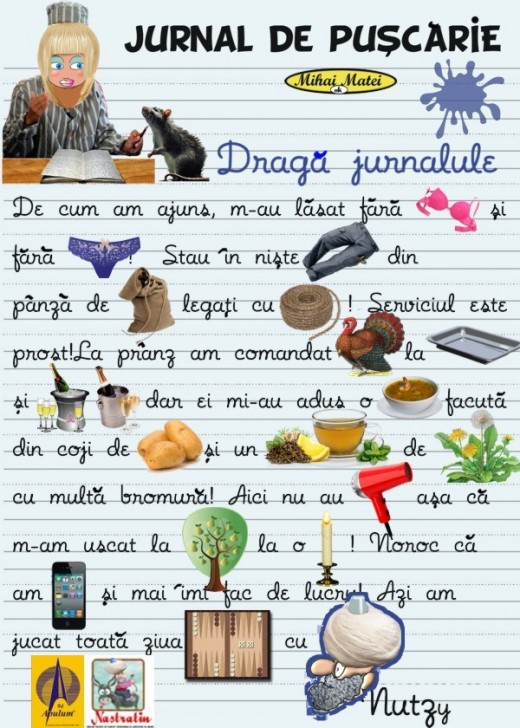 JURNAL DE PUȘCĂRIE
Mihai Matei
ok
Dragă jurnalule
De cum am ajuns, m-au lăsat fără și
fără ! Stau în niște din
pânză de legați cu ! Serviciul este
prost!La prânz am comandat la
și dar ei mi-au adus o facută
din coji de și un de
cu multă bromură! Aici nu au așa că
m-am uscat la la o ! Noroc că
am și mai îmi fac de lucru! Azi am
jucat toată ziua cu
Nutzy
Apulum
Nastratin